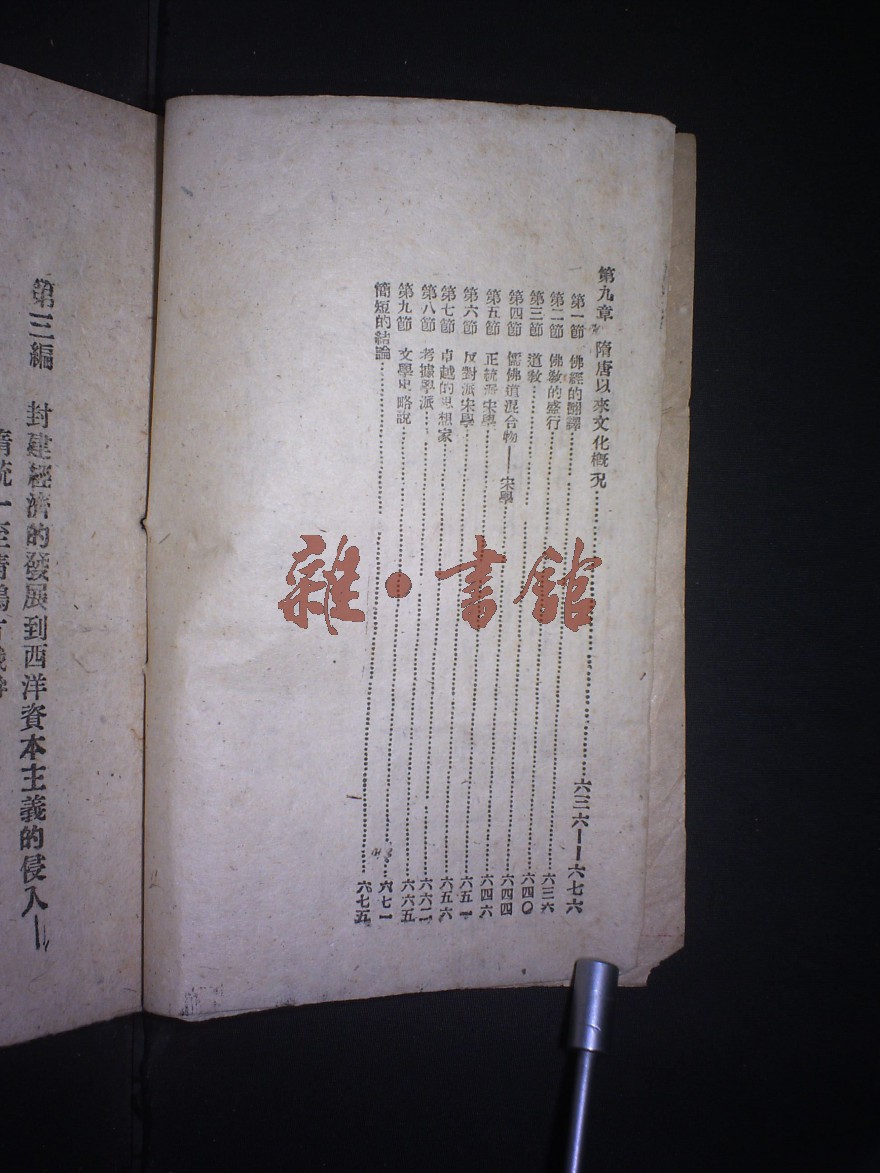 第九章 隋唐以來文化概況……六三六——六七六
第一節 佛經的翻譯……六三六
第二節 佛教的盛行……六四〇
第三節 道教……六四四
第四節 儒佛道混合物——宋學……六四六
第五節 正統派宋學……六五一
第六節 反對派宋學……六五六
第七節 卓越的思想家……六六二
第八節 考據學派……六六五
第九節 文學史略說……六七一
簡短的結論……六七五
第三編 封建經濟的發展到西洋資本主義的侵入—
雜·書館